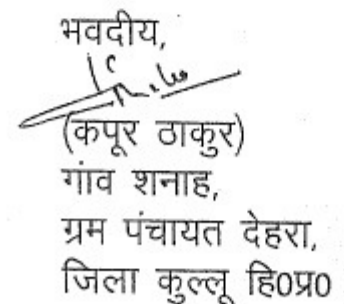 भवदीय,
(कपूर ठाकुर)
गांव शनाह,
ग्रम पंचायत देहरा,
जिला कुल्लू हि0प्र0